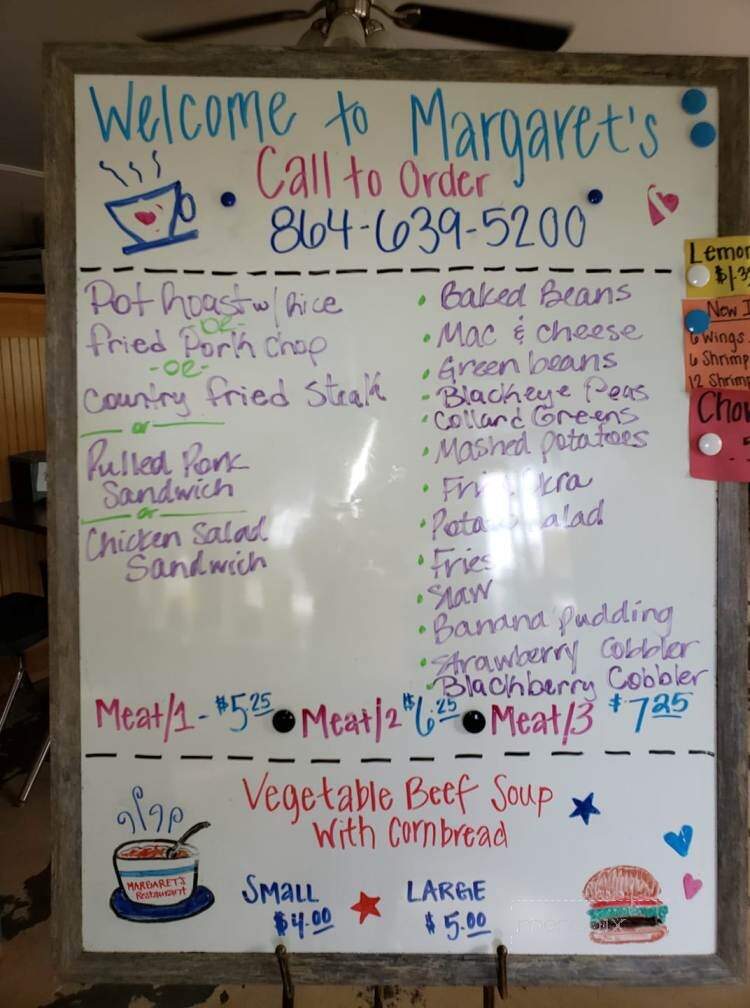 Welcome to Margaret's
Call to Order
864-639-5200
Pot Roast w/ Rice
-or-
Fried Pork Chop
-or-
Country Fried Steak
or
Pulled Pork
Sandwich
or
Chicken Salad
Sandwich
Baked Beans
Mac & Cheese
Green beans
Blackeye Peas
Collard Greens
Mashed potatoes
Okra
Fries
Slaw
Banana Pudding
Strawberry Cobbler
Blackberry Cobbler
Meat/1 - $5.25 Meat/2 $6.25 Meat/3 $7.25
Vegetable Beef Soup
With Cornbread
SMALL
$4.00
LARGE
$5.00
MARGARET'S
Restaurant
New
6 Wings
6 Shrimp
12 Shrimp